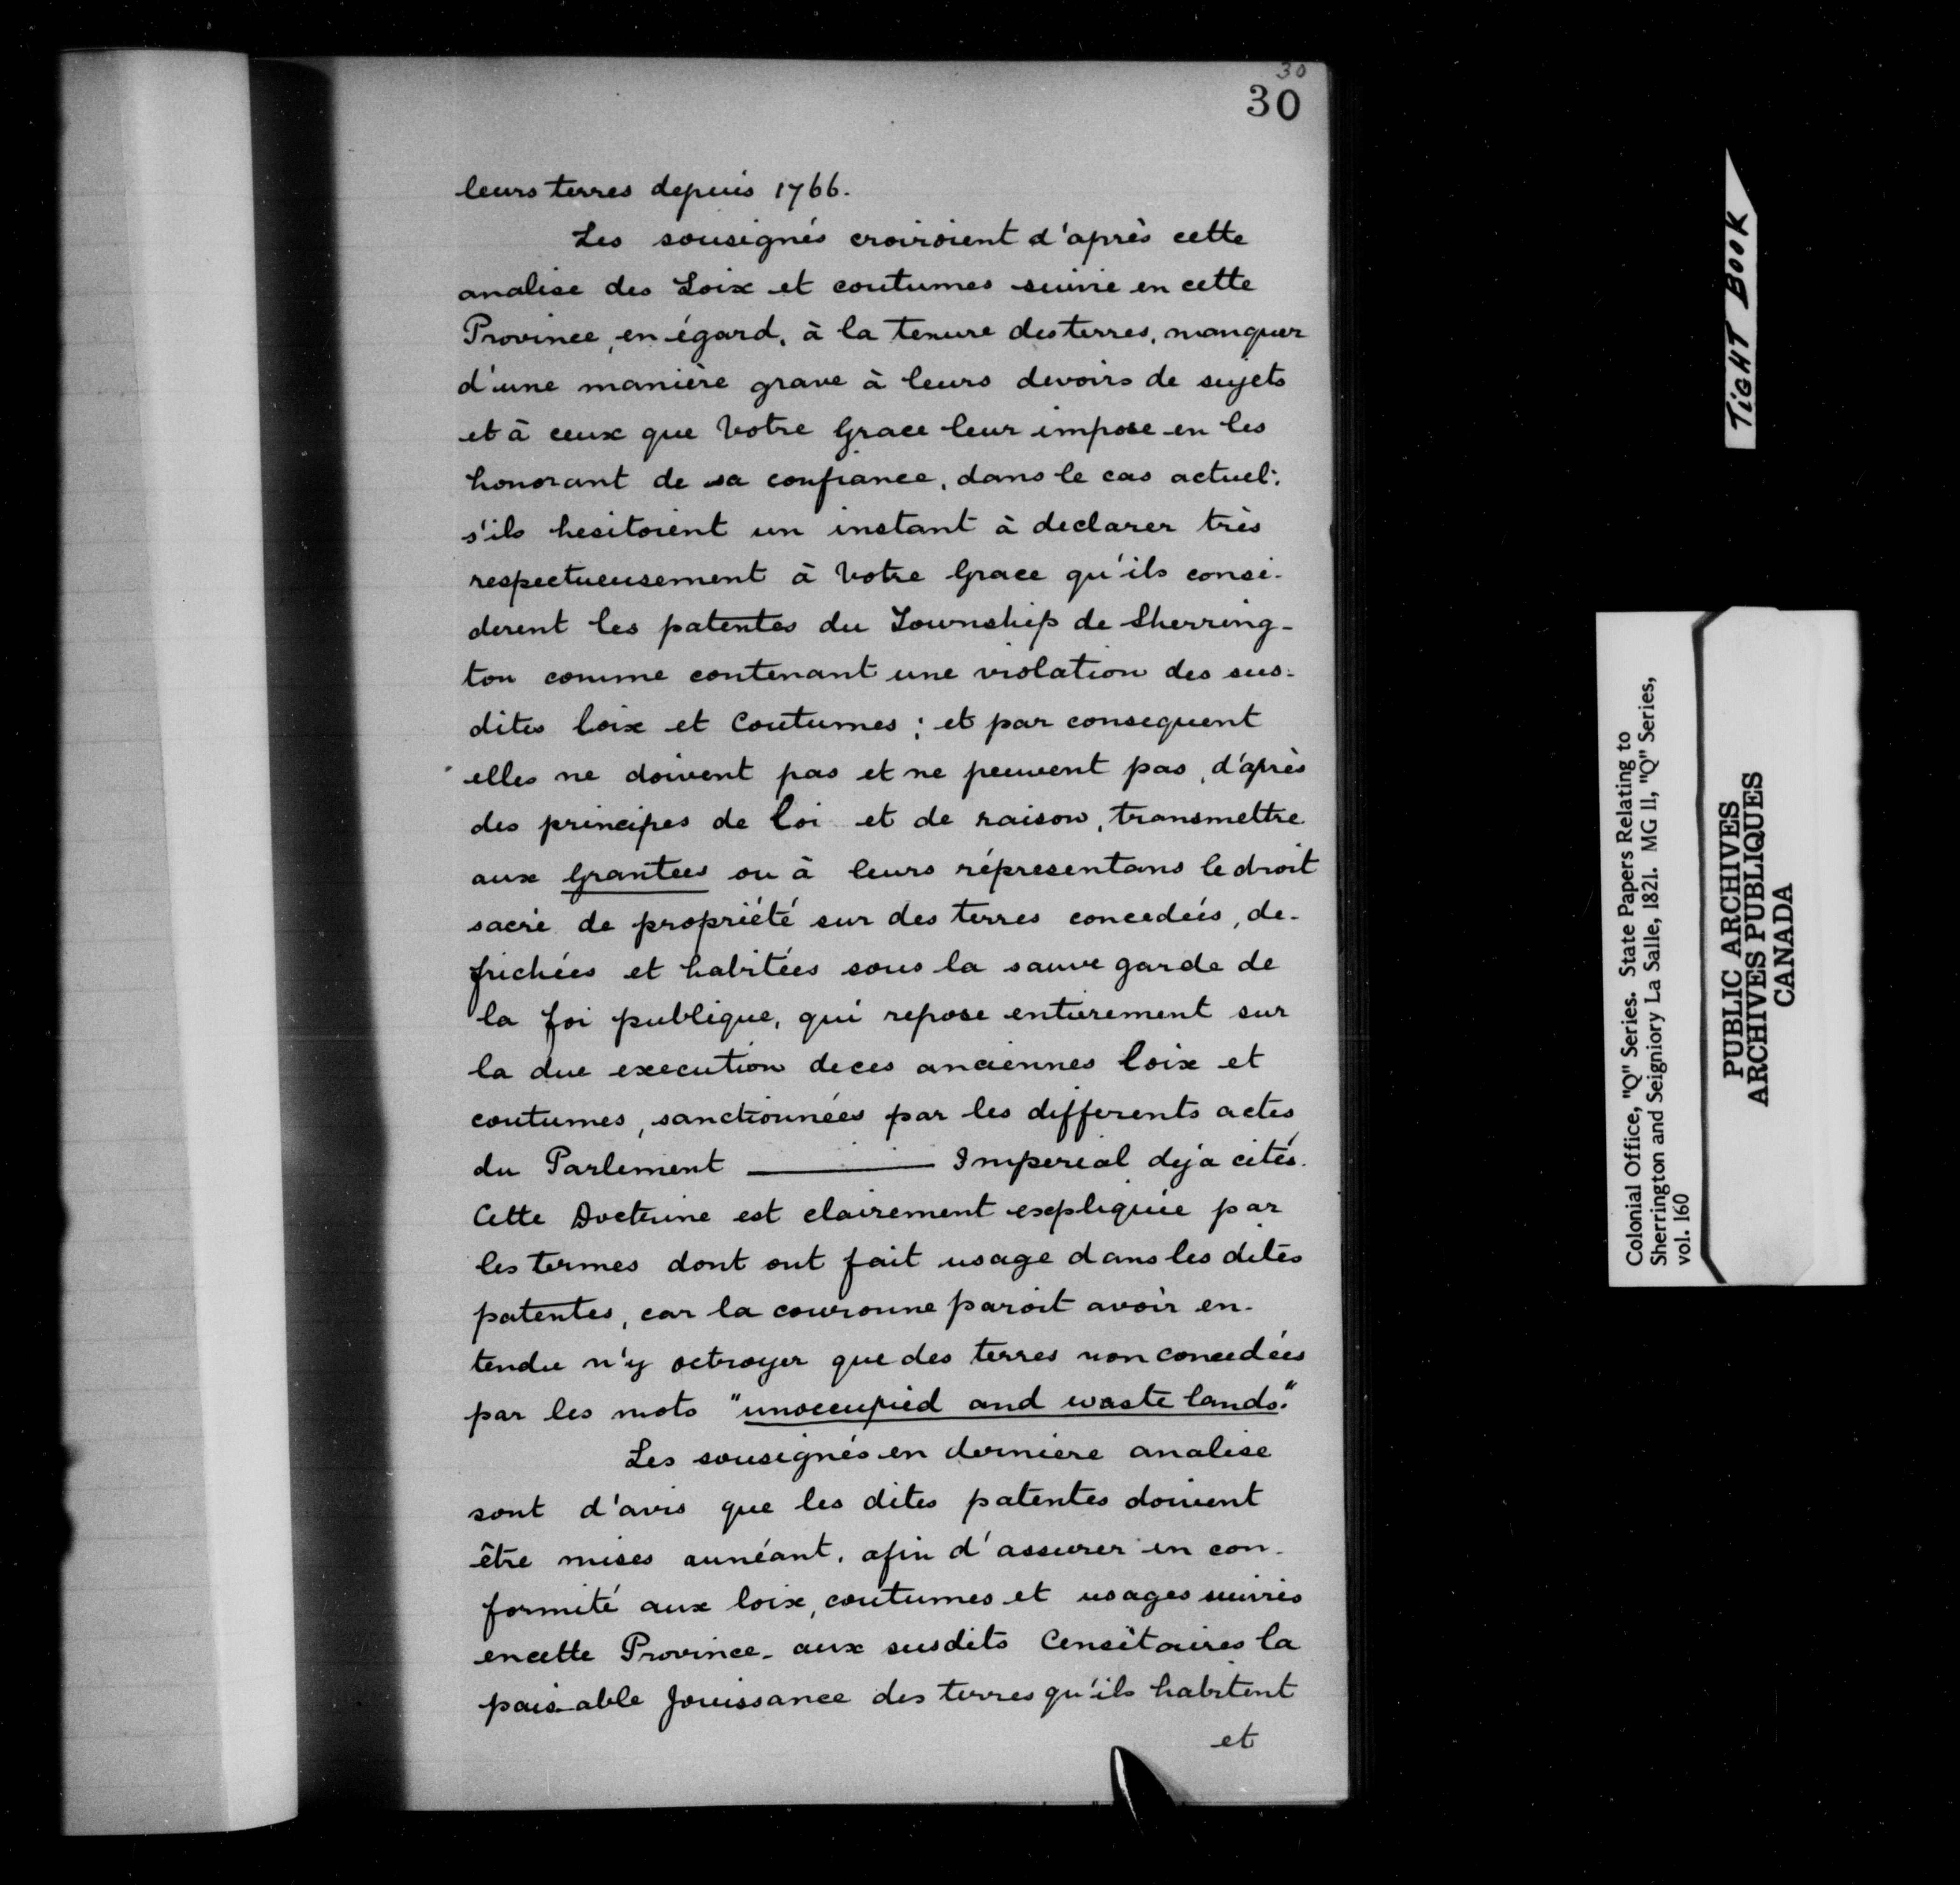 30
30
leurs terres depuis 1766.
Les sousignés croiroient d'après cette
analise des Loix et coutumes suivie en cette
Province, en égard, à la tenure des terres, manquer
d'une manière grave à leurs devoirs de sujets
et à ceux que Votre Grace leur impose en les
honorant de sa confiance, dans le cas actuel;
s'ils hesitoient un instant à declarer très
respectueusement à Votre Grace qu'ils consi-
derent les patentes du Township de Sherring-
ton comme contenant une violation des sus-
dites loix et Coutumes; et par consequent
elles ne doivent pas et ne peuvent pas, d'après
des principes de loi et de raison, transmettre
aux Grantees ou à leurs répresentans le droit
sacré de propriété sur des terres concedeés, de-
frichées et habitées sous la sauve garde de
la foi publique, qui repose entierement sur
la due execution de ces anciennes loix et
coutumes, sanctionnées par les differents actes
du Parlement ——— Imperial déja cités.
Cette Doctrine est clairement expliquée par
les termes dont ont fait usage dans les dites
patentes, car la couronne paroit avoir en-
tendu n'y octroyer que des terres non concedées
par les mots "unoccupied and waste lands."
Les sousignés en derniere analise
sont d'avis que les dites patentes doivent
être mises aunéant, afin d'assurer en con-
formité aux loix, coutumes et usages suivis
en cette Province, aux susdits Censitaires la
paisable Jouissance des terres qu'ils habitent
et
TIGHT BOOK
Colonial Office, "Q" Series. State Papers Relating to
Sherrington and Seigniory La Salle, 1821. MG 11, "Q" Series,
vol. 160
PUBLIC ARCHIVES
ARCHIVES PUBLIQUES
CANADA